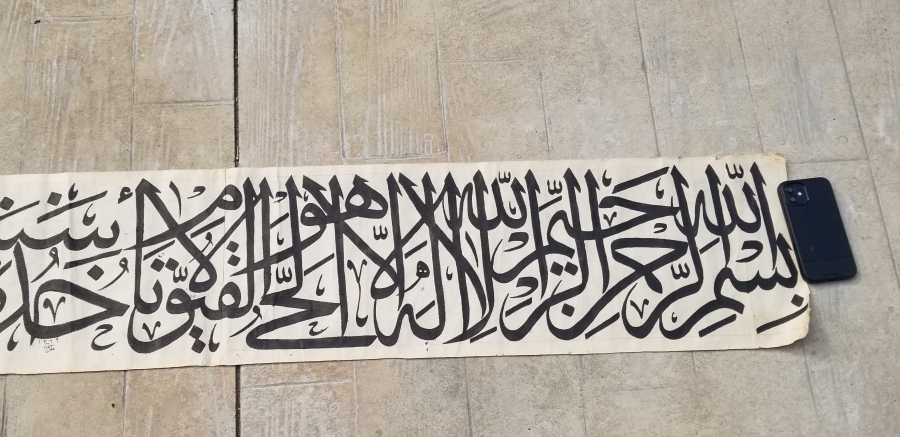 بسم الله الرحمن الرحيم الله لا إله إلا هو الحي القيوم لا تأخذه سنة